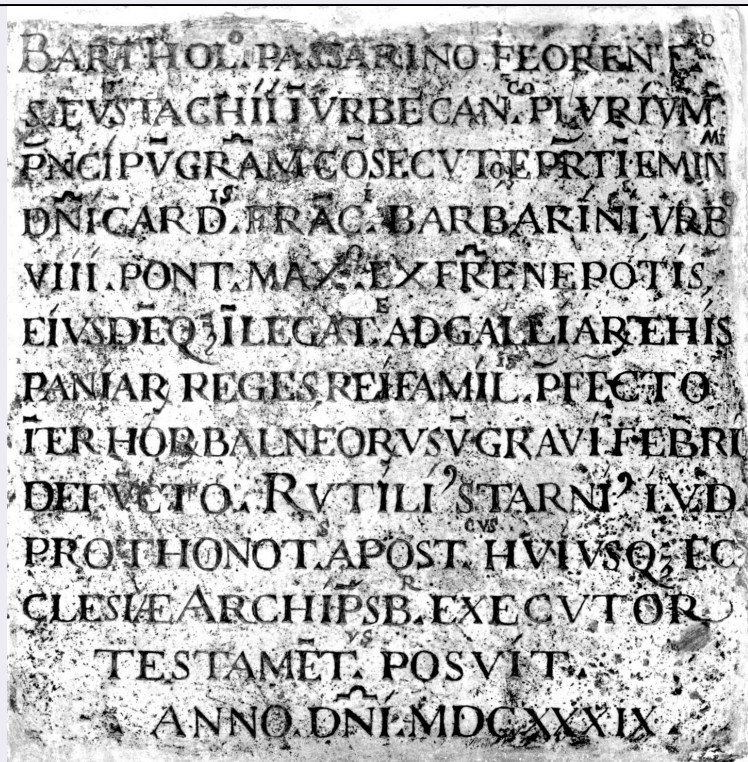 BARTHOL°. PASSARINO FLORENT°
S. EVSTACHII Ī VRBE CAN.CO PLVRIVM̄
P̄NCIPV̄ GRĀM CŌSECVTO E PR̄TI EMIN MI
DN̄I CARD.IS FRĀC.I BARBARINI VRB
VIII. PONT. MAX. EX FR̄E NEPOTIS
EIVSDĒQȝ Ī LEGAT.E AD GALLIAR ET HIS
PANIAR REGES REI FAMIL. P̄FECTO
ĪTER HOR BALNEOR VSV̄ GRAVI FEBRI
DEFVCTO. RVTILI⁹ STARNI⁹ LVD
PROTHONOT.S APOST.CVS HVIVSQȝ EC
CLESIÆ ARCHIP̄SB.R EXECVTOR
TESTAMĒT.VS POSVIT.
ANNO. DN̄I. MDCXXXIX.